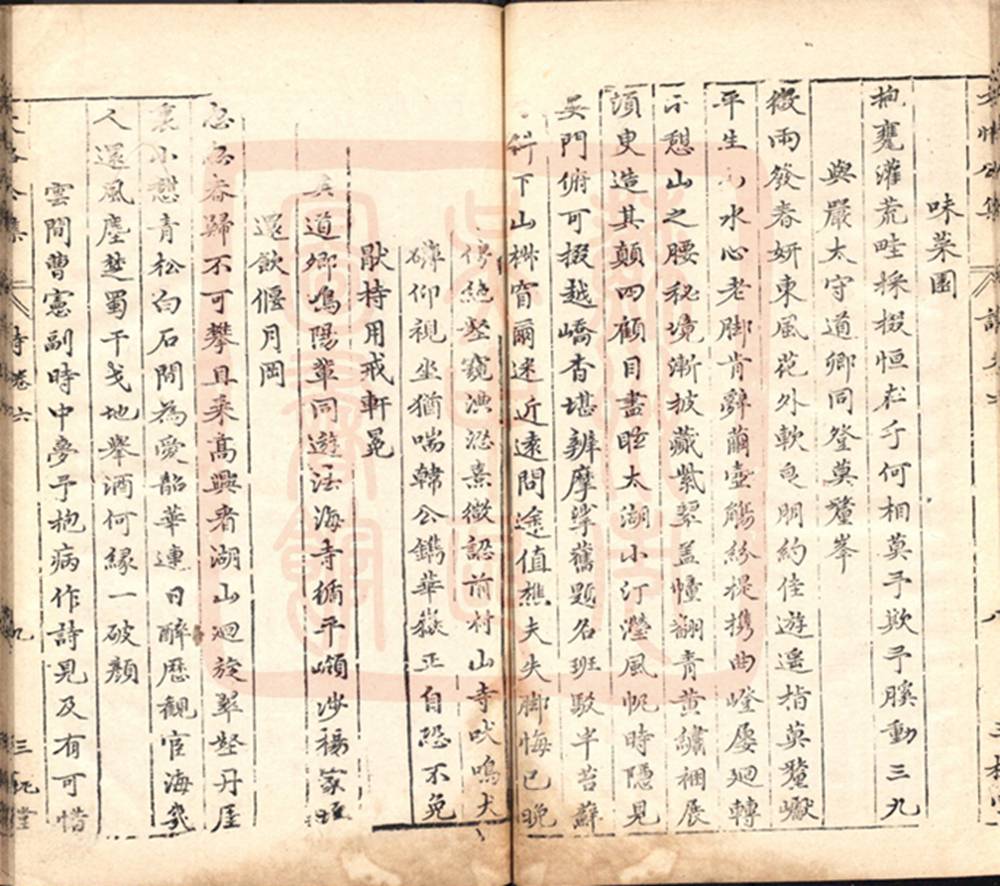 味菜園
抱甕灌荒畦採掇恒在手何相莫予欺予膝動三九
與嚴太守道卿同登莫釐峯
微雨發春妍東風花外軟良朋約佳遊遥指莫釐巘
平生山水心老脚肯辭繭壺觴紛提携曲磴屢廻轉
小憩山之腰秘境漸披藏紫翠盖幢翻青黄繡裀展
須臾造其顛四顧目盡眩太湖小汀瀅風帆時隱見
吴門俯可掇越嶠杳堪辨摩挲舊題名班駁半苔蘚
斜下山椒窅爾迷近遠問途值樵夫失脚悔已晚
傍絶壑窺洪熹微認前村山寺吠鳴犬
磚仰視坐猶喘韓公鐫華嶽正自恐不免
猷持用戒軒冕
道卿鳴陽輩同遊法海寺循平嶺涉楊家
還飲偃月岡
忽忽春歸不可攀且乘高興看湖山迴旋翠壑丹厓
裏小憩青松白石間為愛韶華連日醉歷觀宦海幾
人還風塵楚蜀干戈地舉酒何緣一破顏
雲間曹憲副時中夢予抱病作詩見及有可惜
詩卷六
九
三槐堂